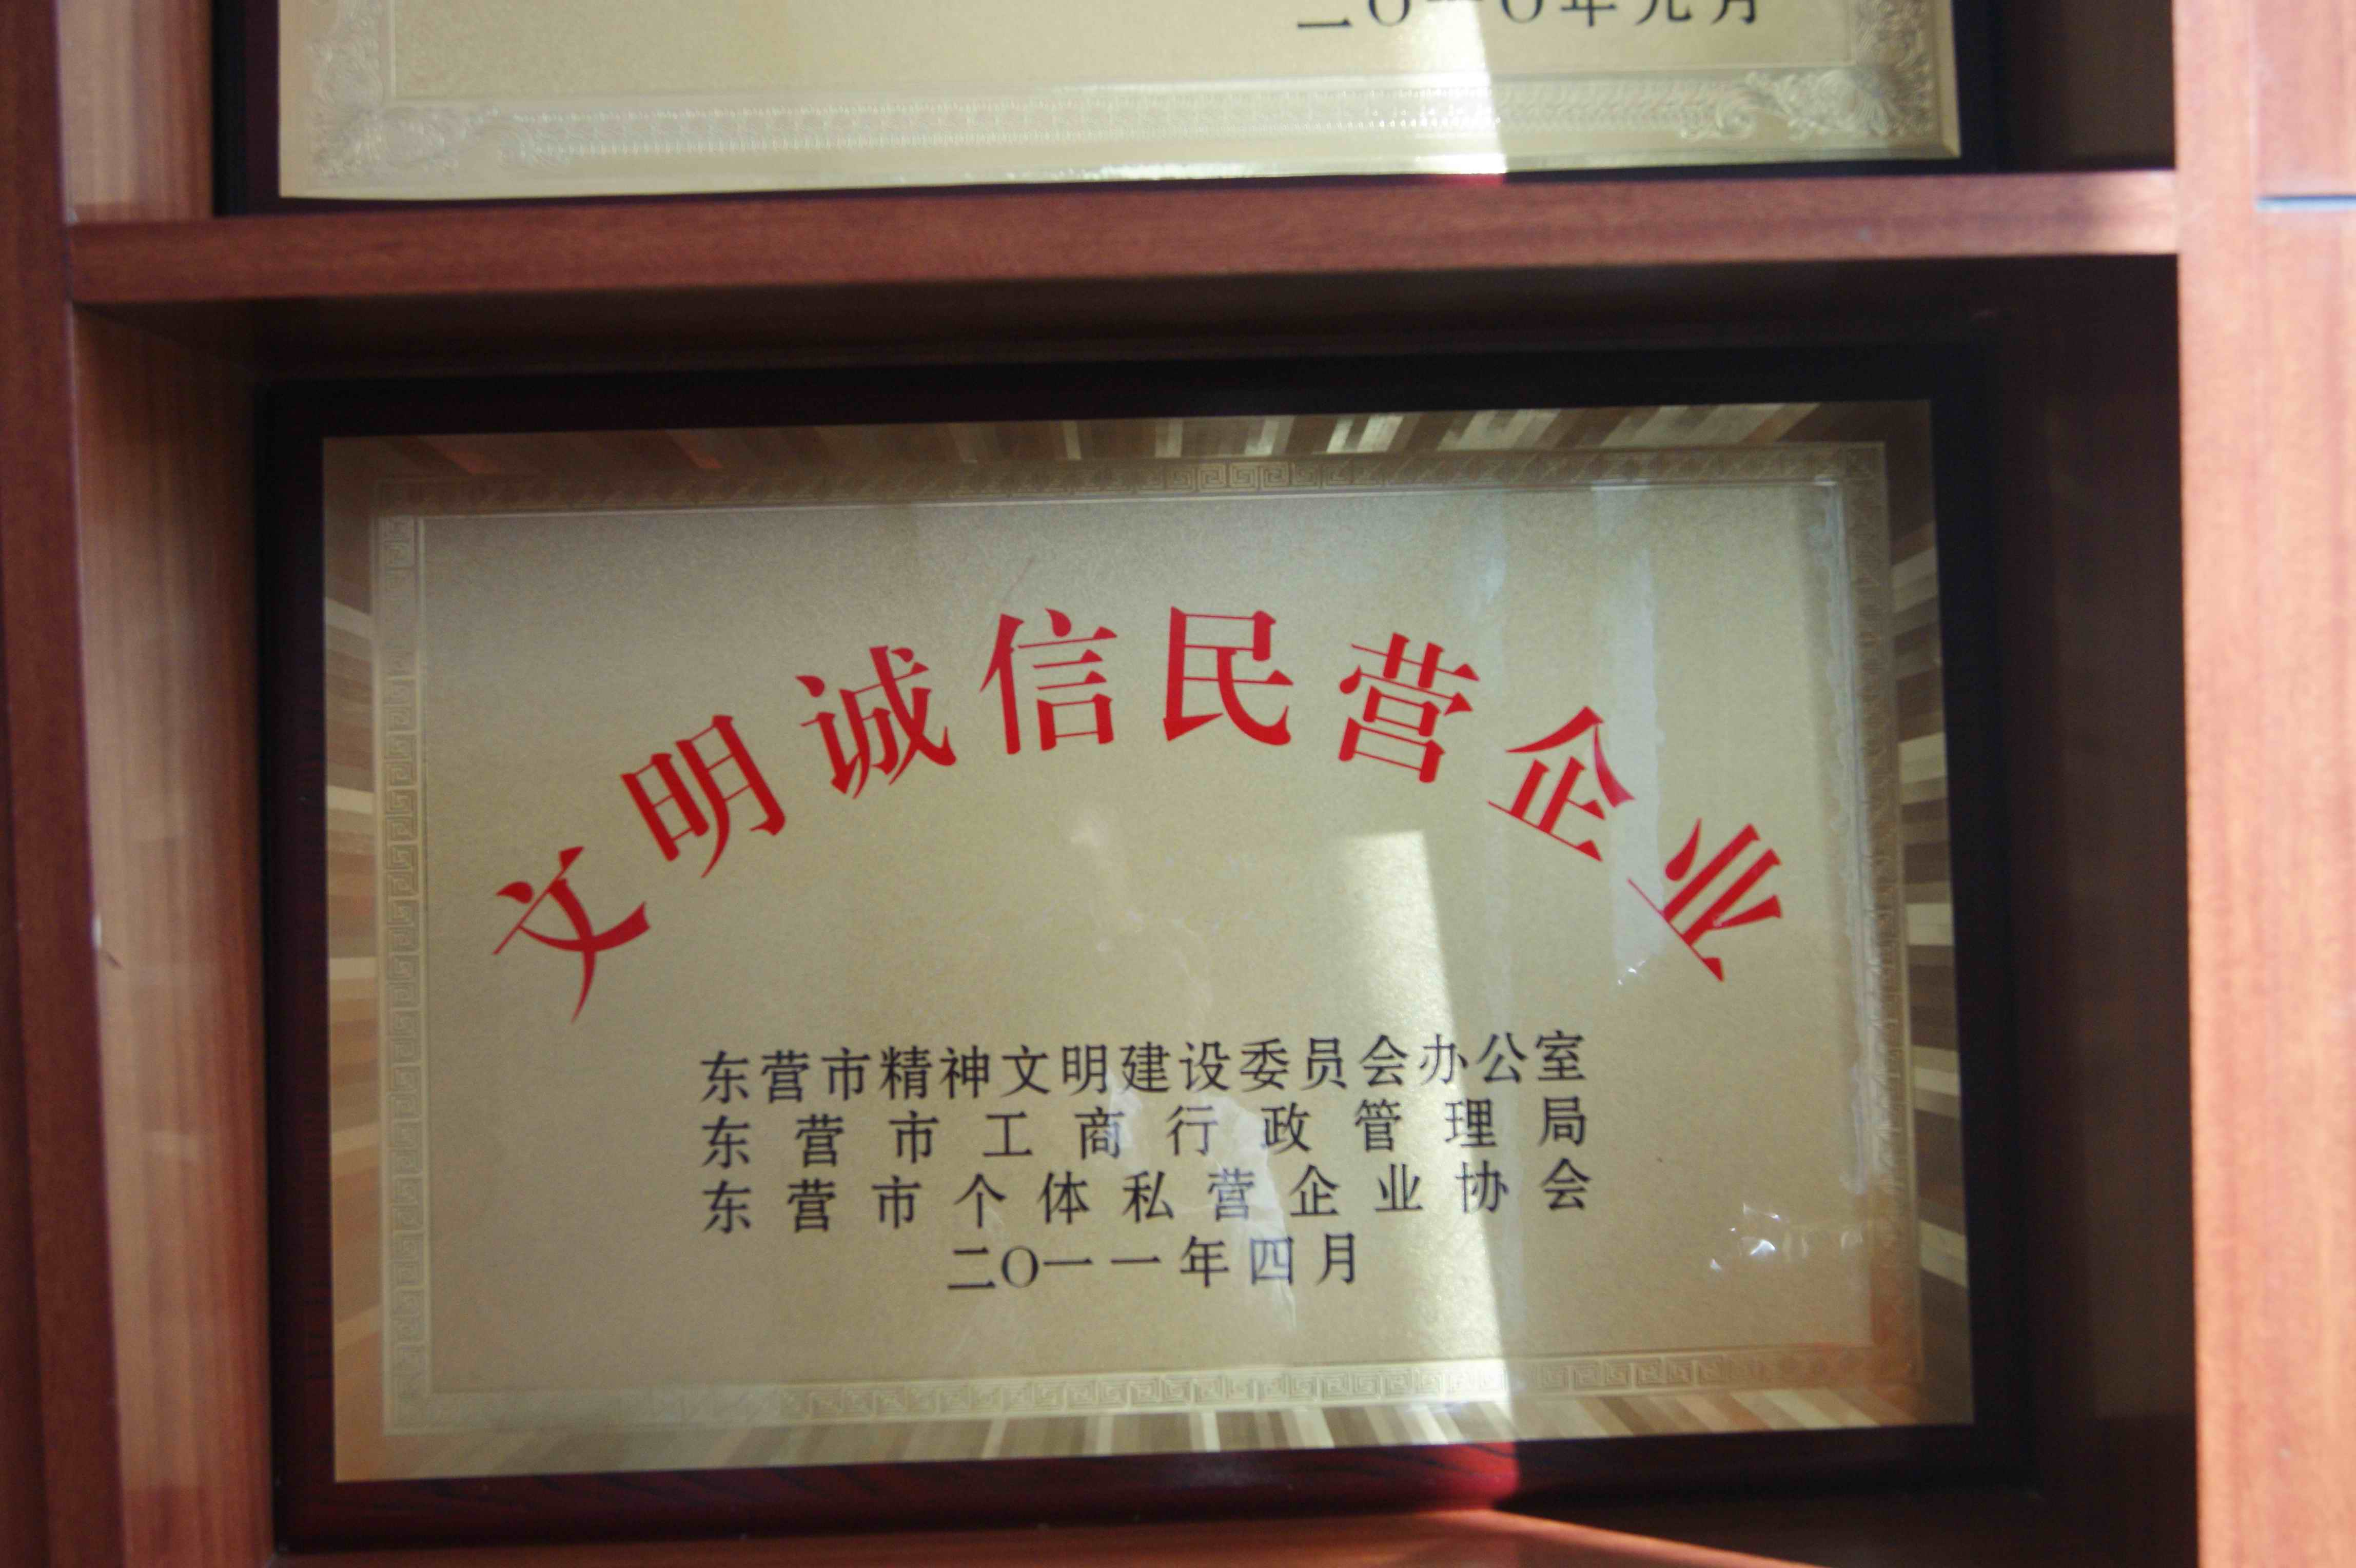 二〇一〇年元月
文明诚信民营企业
东营市精神文明建设委员会办公室
东营市工商行政管理局
东营市个体私营企业协会
二〇一一年四月